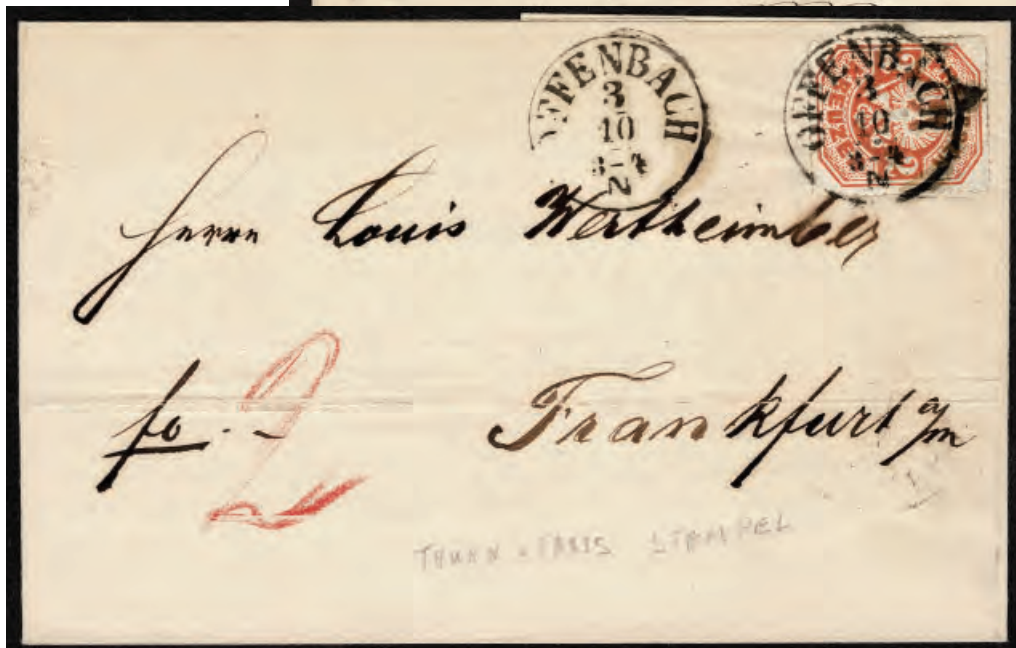 OFFENBACH
3
10
3-4
N
OFFENBACH
3
10
3-4
N
Herrn Louis Wertheimber
fo. 2
Frankfurt a/m
THURN + TAXIS STEMPEL